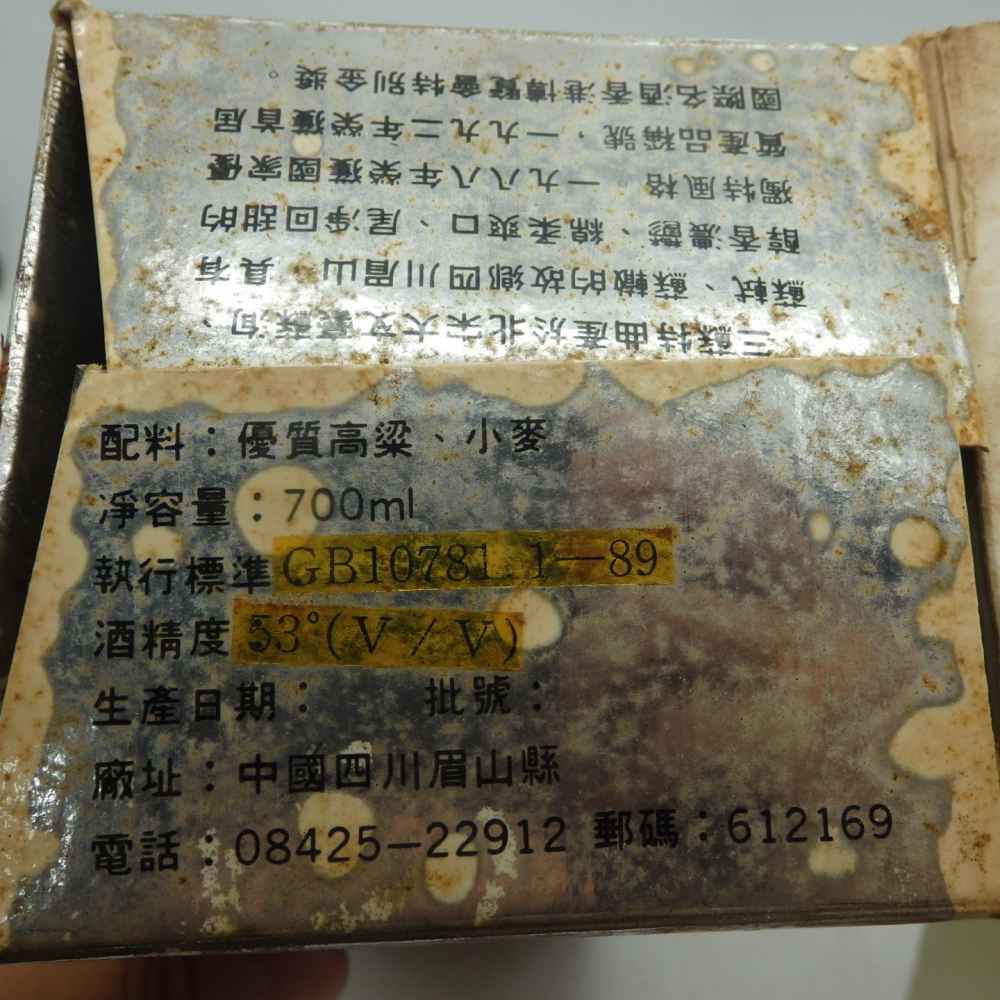 三蘇特曲產於北宋大文豪蘇洵、
蘇軾、蘇轍的故鄉四川眉山 具有
醇香濃鬱、綿柔爽口、尾淨回甜的
獨特風格 一九八八年榮獲國家優
質產品稱號、一九九二年榮獲首屆
國際名酒香港博覽會特別金獎。
配料：優質高梁、小麥
淨容量：700ml
執行標準GB10781.1—89
酒精度53°(V/V)
生產日期： 批號：
廠址：中國四川眉山縣
電話：08425—22912 郵碼：612169